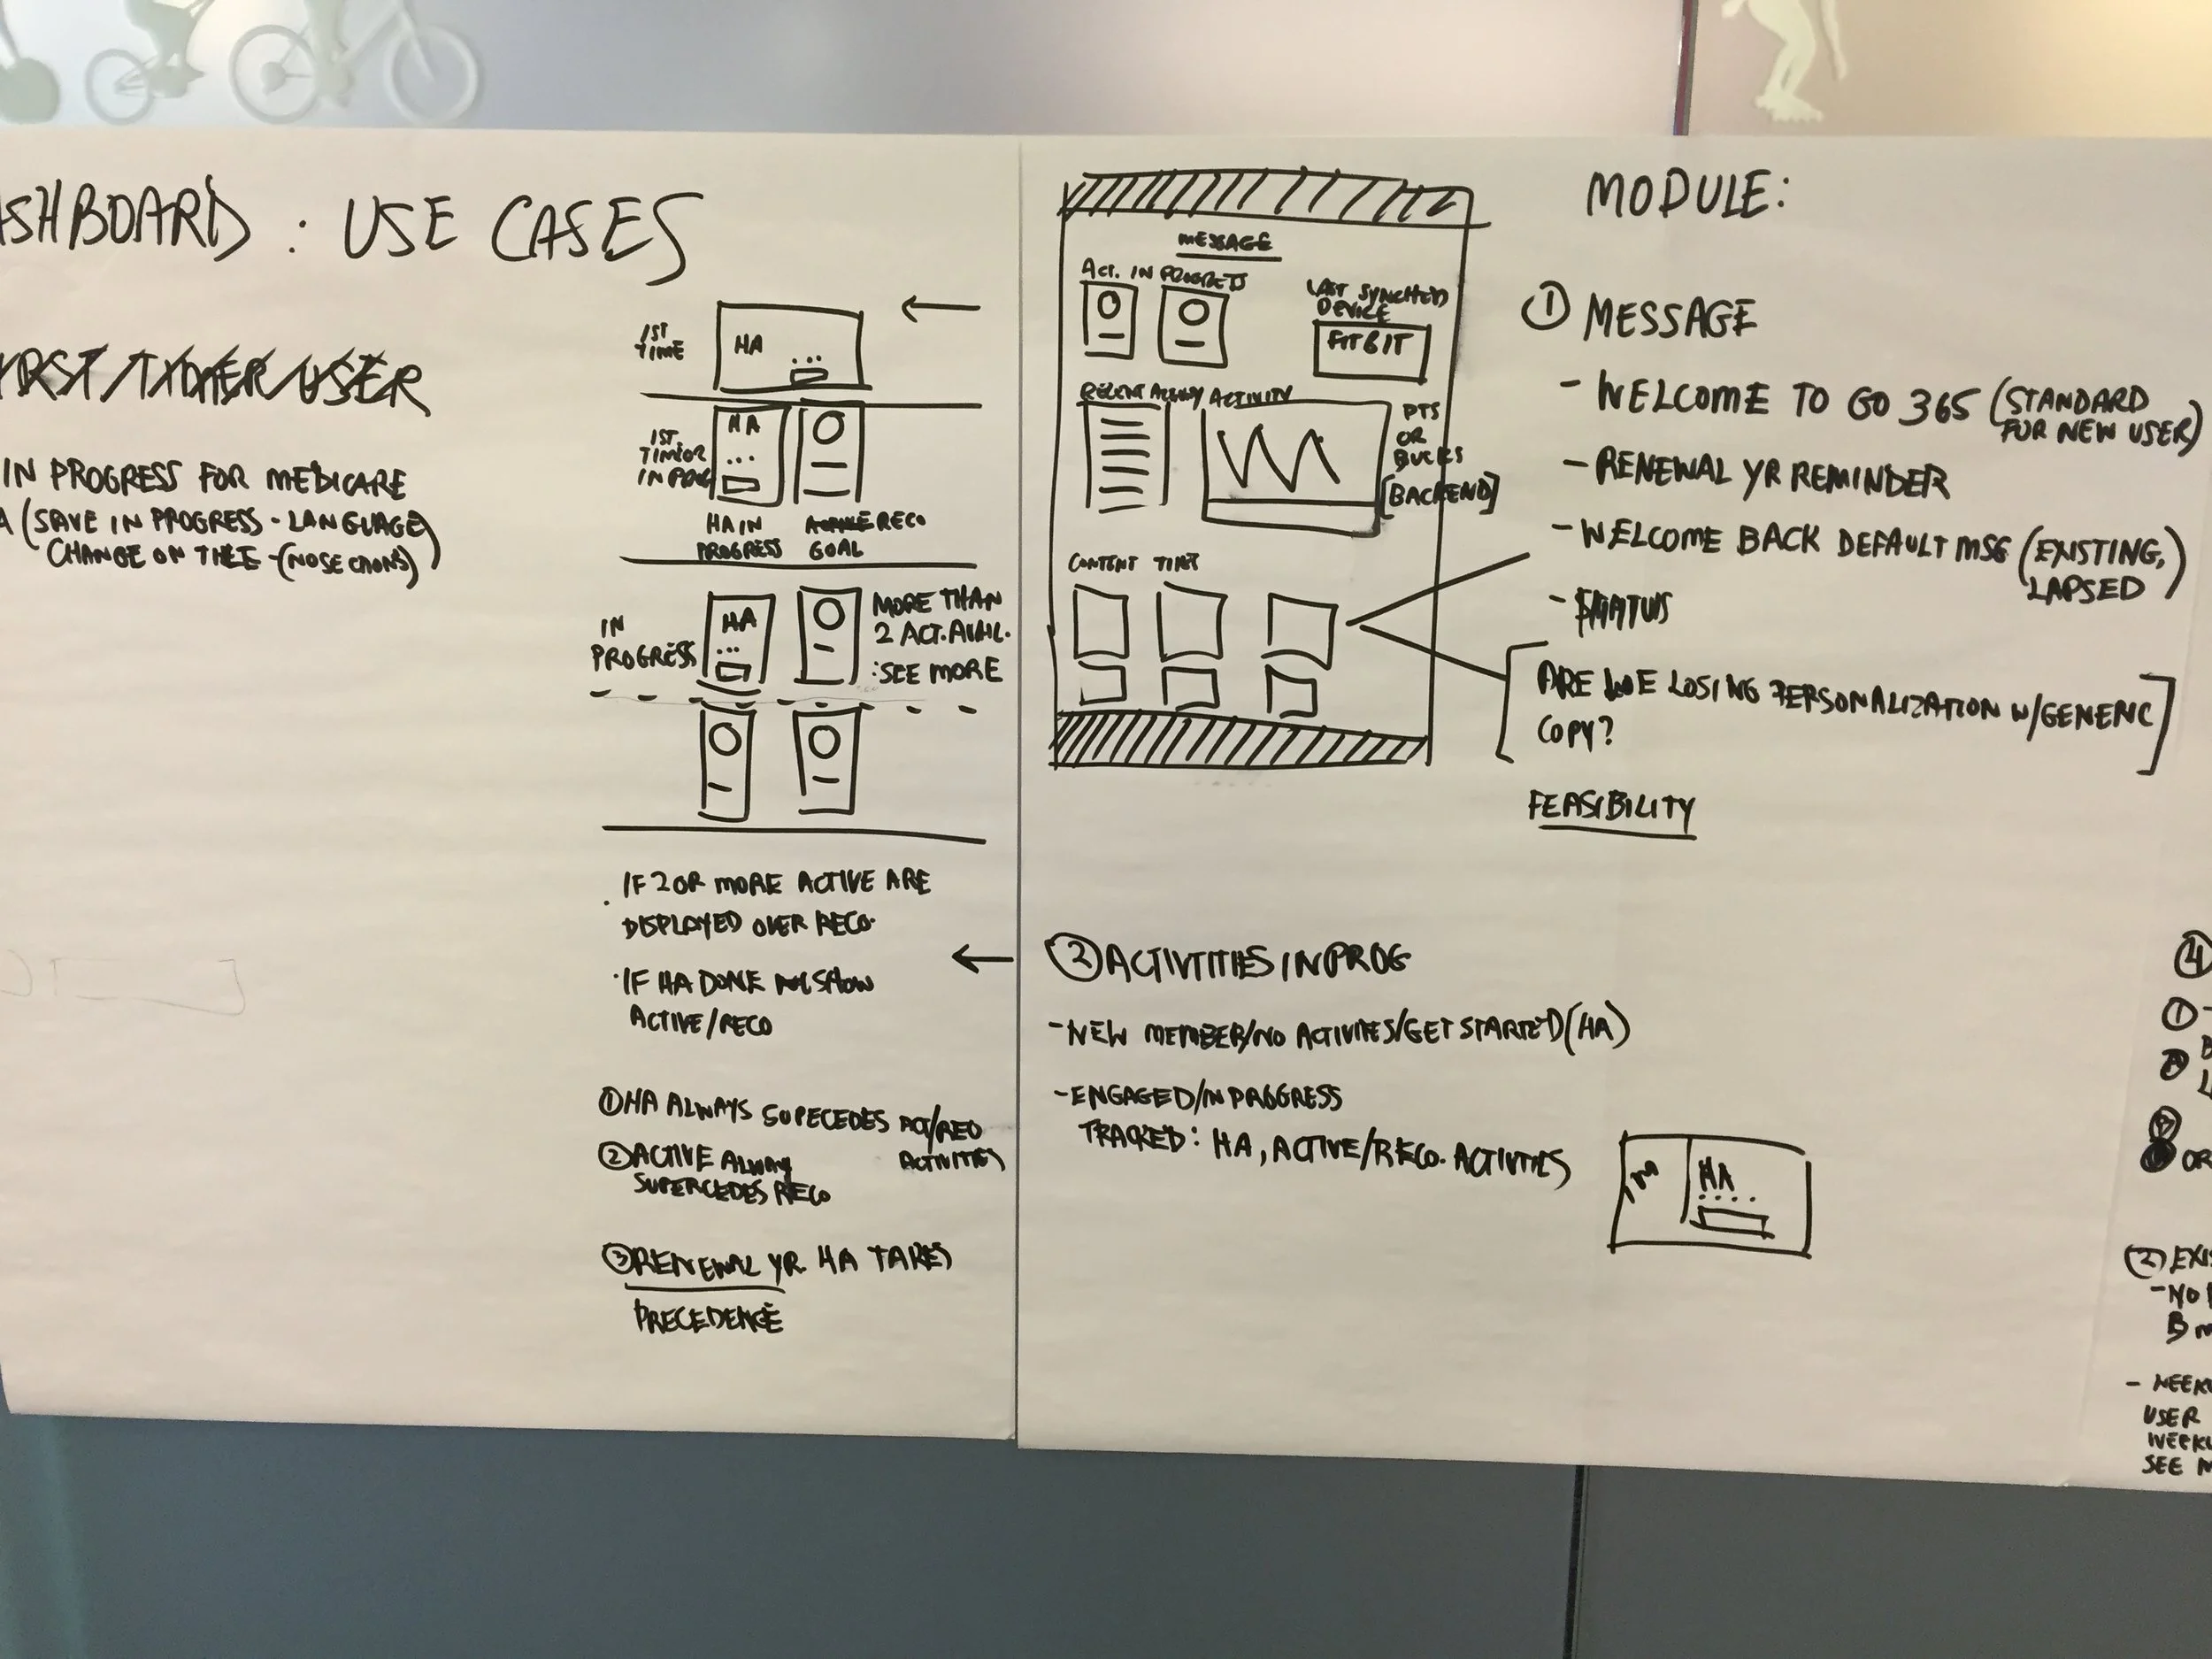 ASHBOARD : USE CASES
FIRST/TIMER/USER
IN PROGRESS FOR MEDICARE
A (SAVE IN PROGRESS - LANGUAGE
CHANGE ON THE - (NO SECTIONS)
1ST
TIME
HA
...
1ST
TIME OR
IN PROG
HA
...
HA IN
PROGRESS
RECO
GOAL
IN
PROGRESS
HA
...
MORE THAN
2 ACT. AVAIL.
: SEE MORE
. IF 2 OR MORE ACTIVE ARE
DISPLAYED OVER RECO.
· IF HA DONE SHOW
ACTIVE/RECO
① HA ALWAYS SUPECEDES ACT/RECO
ACTIVITIES
② ACTIVE ALWAY
SUPERCEDES RECO
③ RENEWAL YR. HA TAKES
PRECEDENCE
MESSAGE
ACT. IN PROGRESS
LAST SYNCHED
DEVICE
FITBIT
RECENT ACTIVITY
PTS
OR
BUCKS
[BACKEND]
CONTENT
MODULE:
① MESSAGE
- WELCOME TO GO 365 (STANDARD
FOR NEW USER)
- RENEWAL YR REMINDER
- WELCOME BACK DEFAULT MSG (EXISTING,
LAPSED)
- STATUS
[ARE WE LOSING PERSONALIZATION W/GENERIC
COPY?]
FEASIBILITY
② ACTIVTITIES IN PROG
- NEW MEMBER/NO ACTIVITIES/GET STARTED (HA)
- ENGAGED/IN PROGRESS
TRACKED: HA, ACTIVE/RECO. ACTIVITIES
HA
....
④
①
OR
② EXIS
- NO
B
- WEEK
USER
WEEKL
SEE M